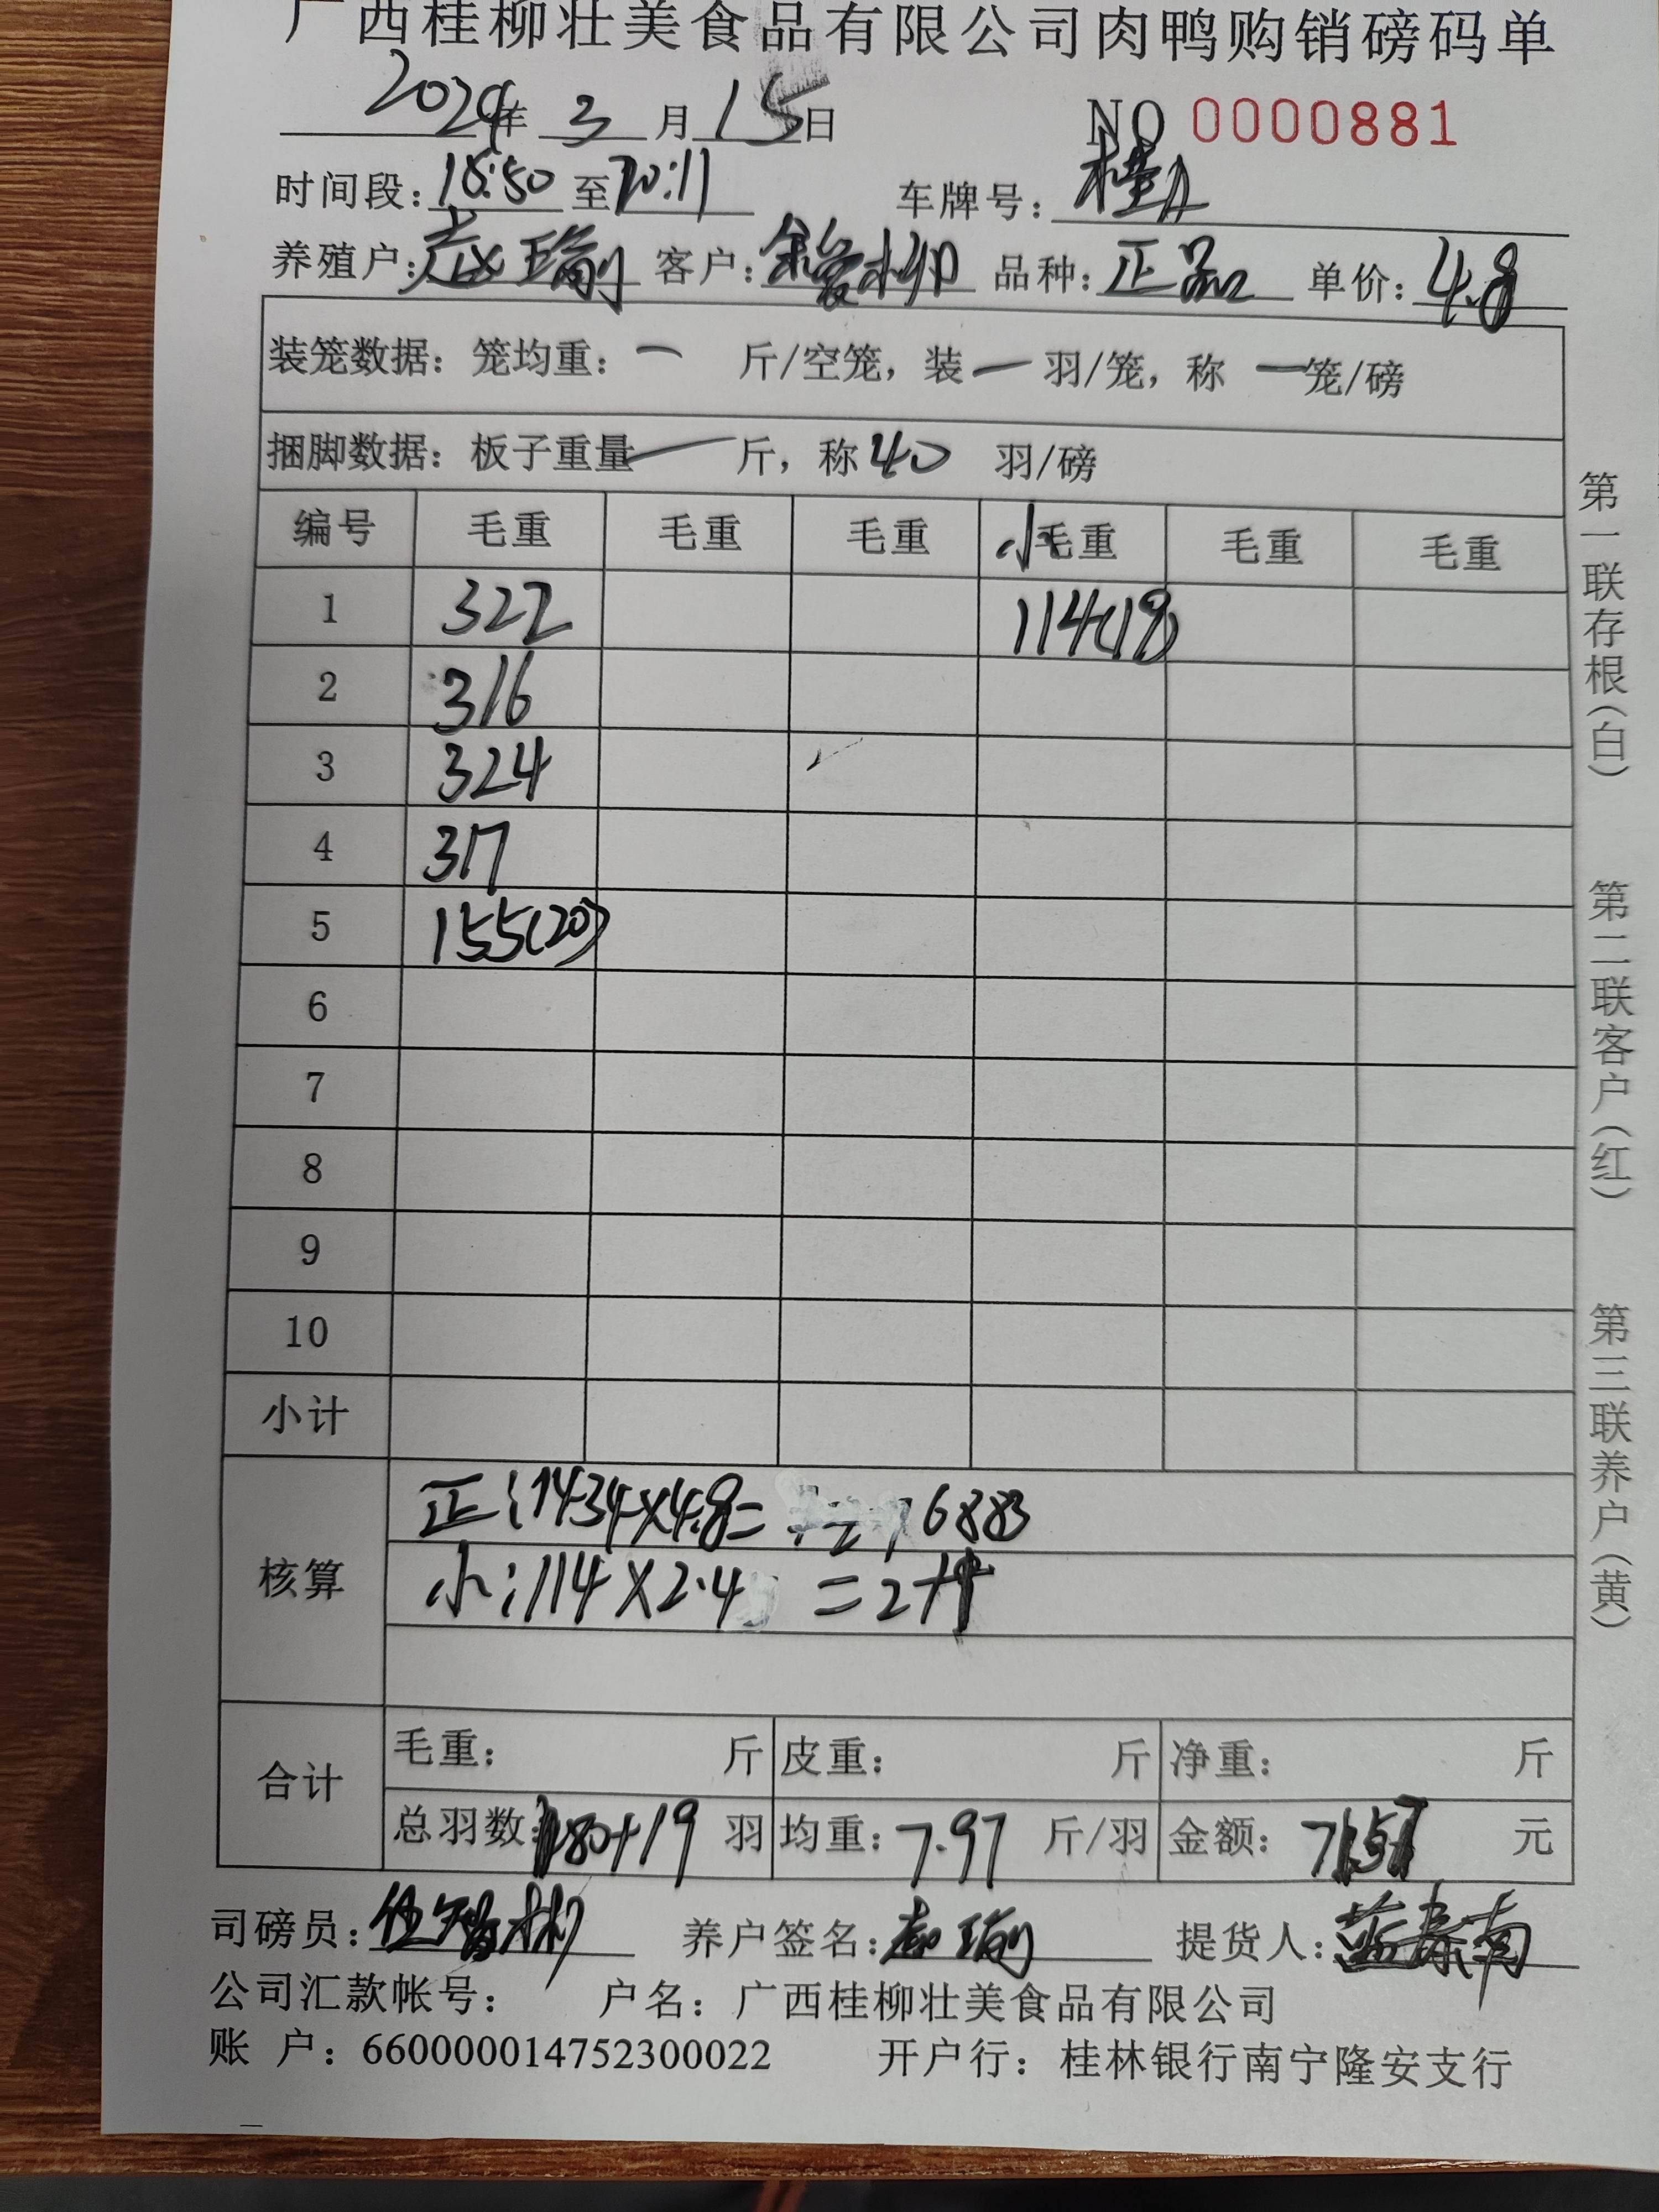 广西桂柳壮美食品有限公司肉鸭购销磅码单
2024年 3 月 15 日 NO 0000881
时间段：18:50 至 20:11 车牌号：桂A
养殖户：赵瑜 客户：柳 品种：正品 单价：4.8
装笼数据：笼均重：一 斤/空笼，装 一 羽/笼，称 一 笼/磅
捆脚数据：板子重量 一 斤，称 40 羽/磅
编号 毛重 毛重 毛重 小毛重 毛重 毛重
1 322 114(19)
2 316
3 324
4 317
5 155(20)
6
7
8
9
10
小计
核算
正：1434×4.8= 6883
小：114×2.4 =274
合计
毛重： 斤 皮重： 斤 净重： 斤
总羽数：180+19 羽 均重：7.97 斤/羽 金额：7157 元
司磅员： 养户签名：赵瑜 提货人：蓝春南
公司汇款帐号： 户名：广西桂柳壮美食品有限公司
账 户：660000014752300022 开户行：桂林银行南宁隆安支行
第一联存根（白）
第二联客户（红）
第三联养户（黄）